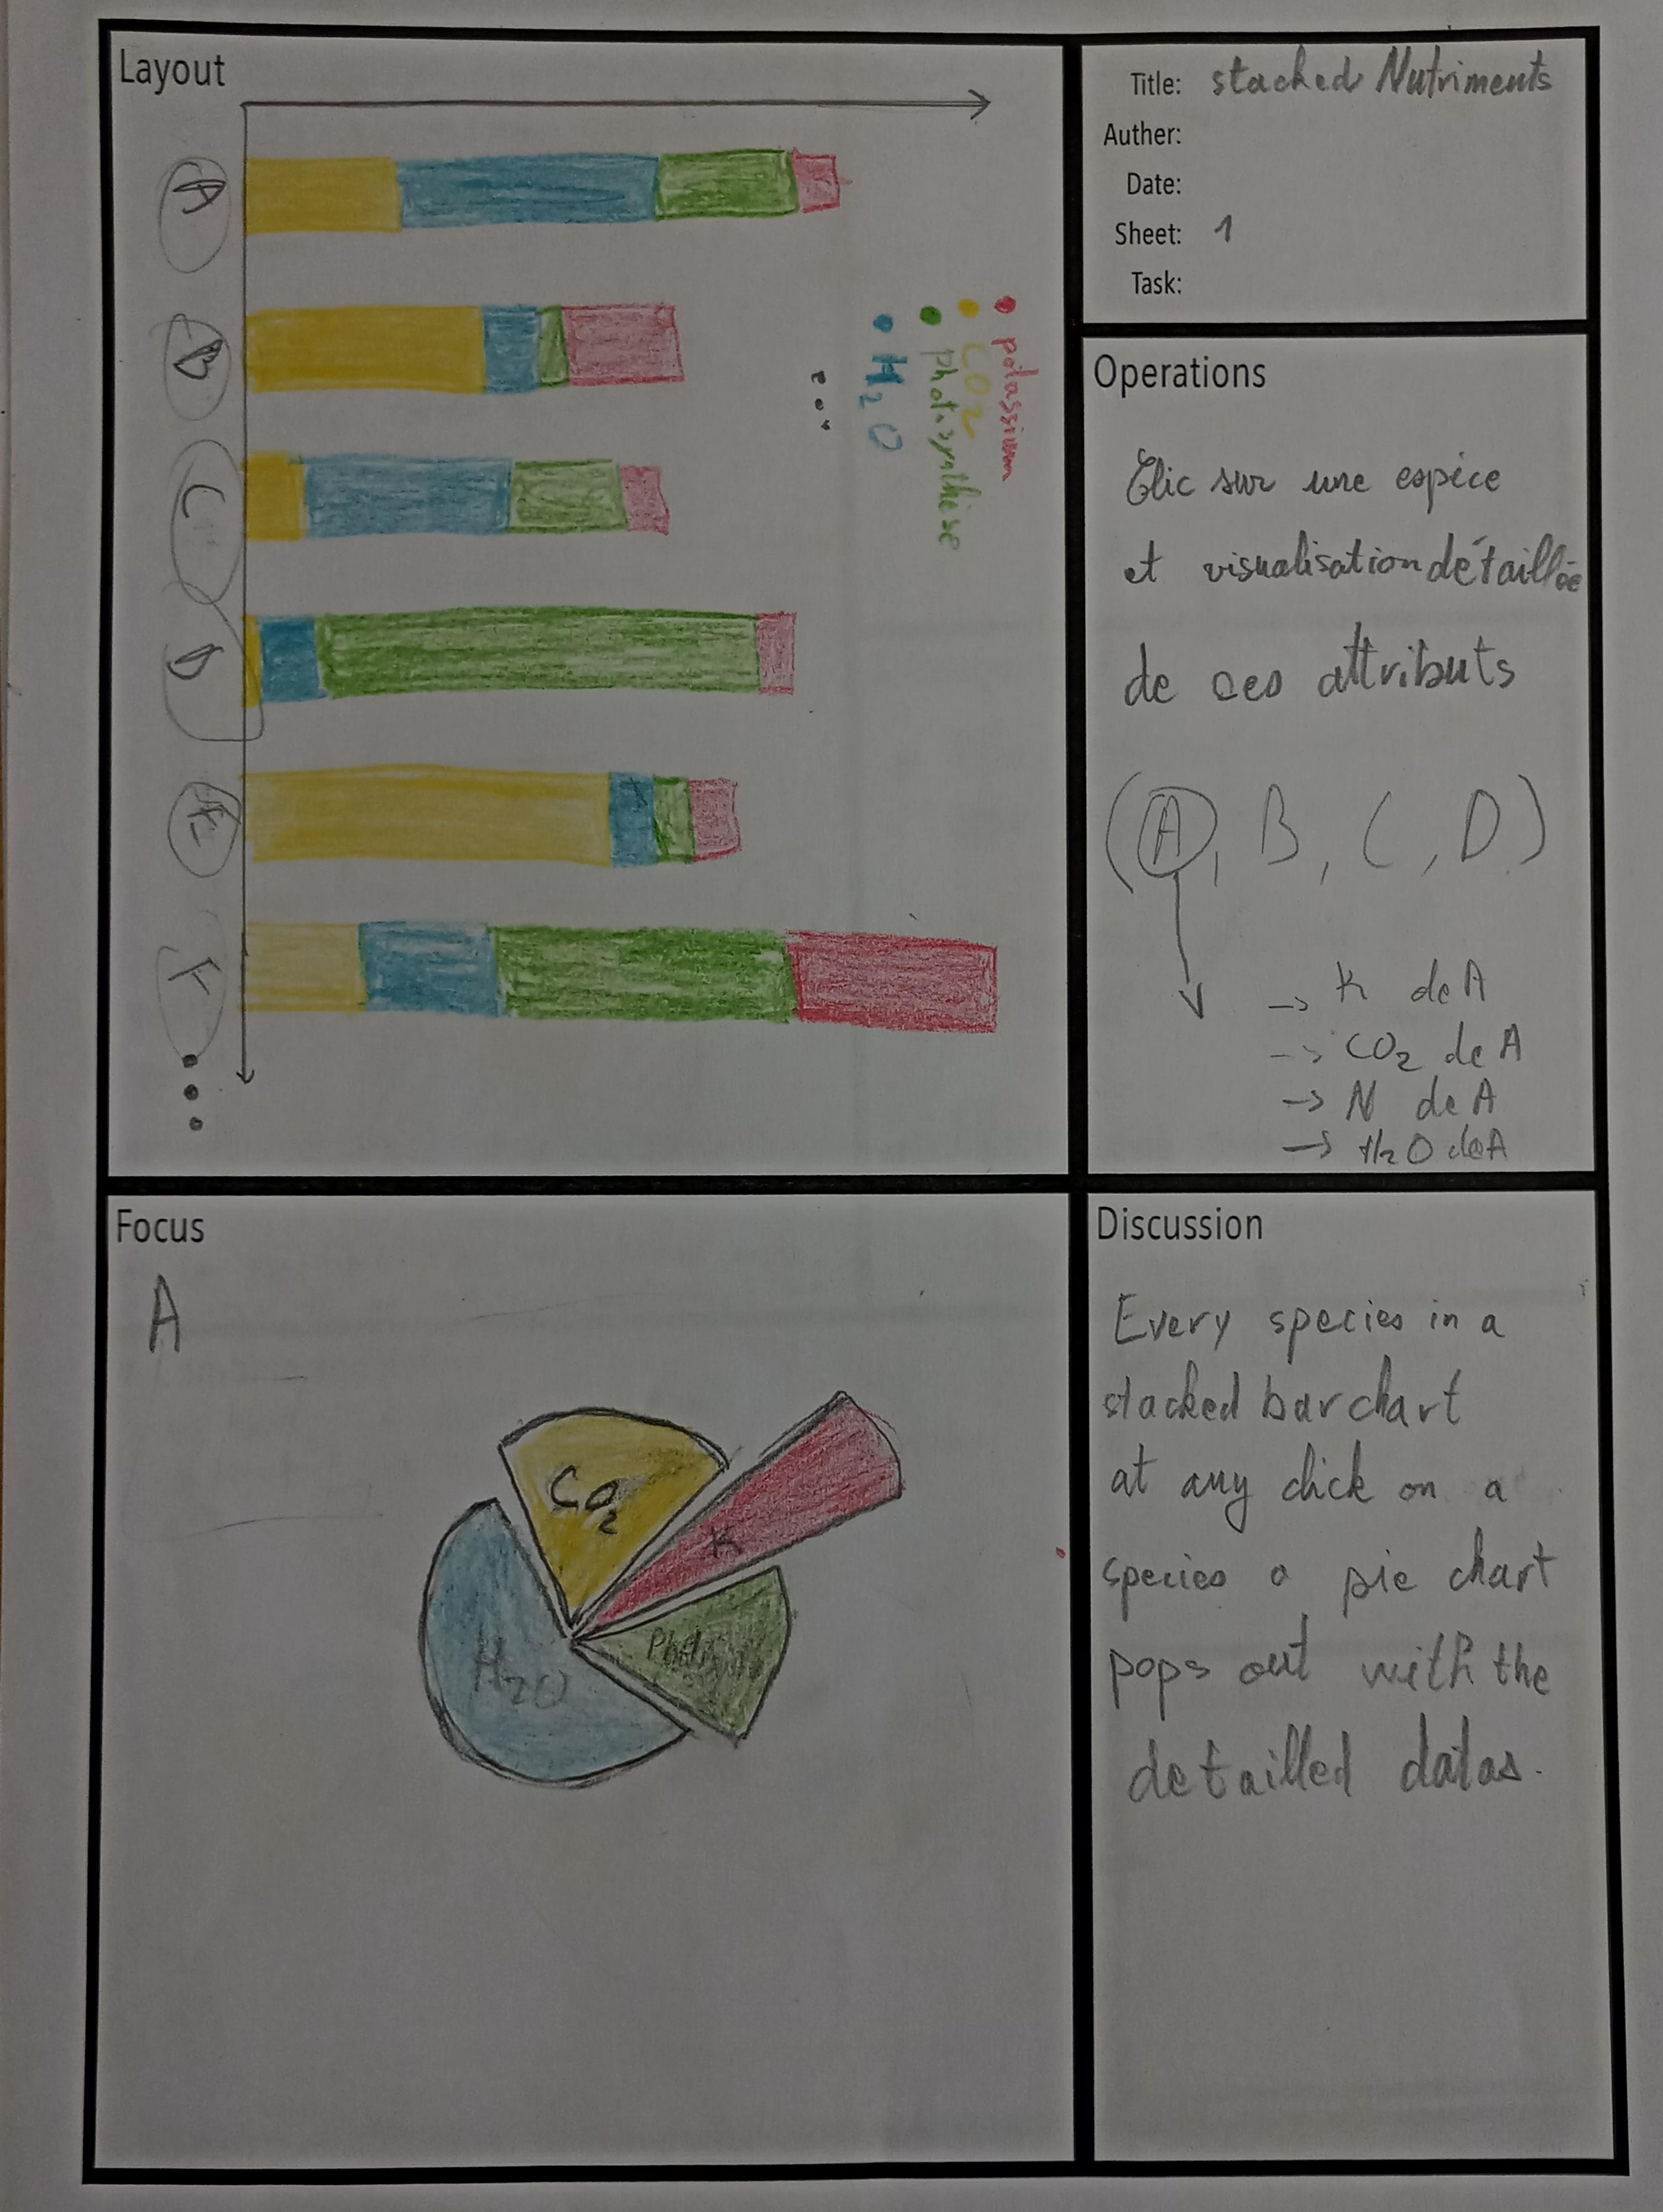 Layout
A
B
C
D
E
F
potassium
CO2
photosynthèse
H2O
Title: stacked Nutriments
Auther:
Date:
Sheet: 1
Task:
Operations
Clic sur une espèce
et visualisation détaillée
de ces attributs
(A, B, C, D)
→ K de A
→ CO2 de A
→ N de A
→ H2O de A
Focus
A
CO2
K
H2O
Discussion
Every species in a
stacked bar chart
at any click on a
species a pie chart
pops out with the
detailled datas.